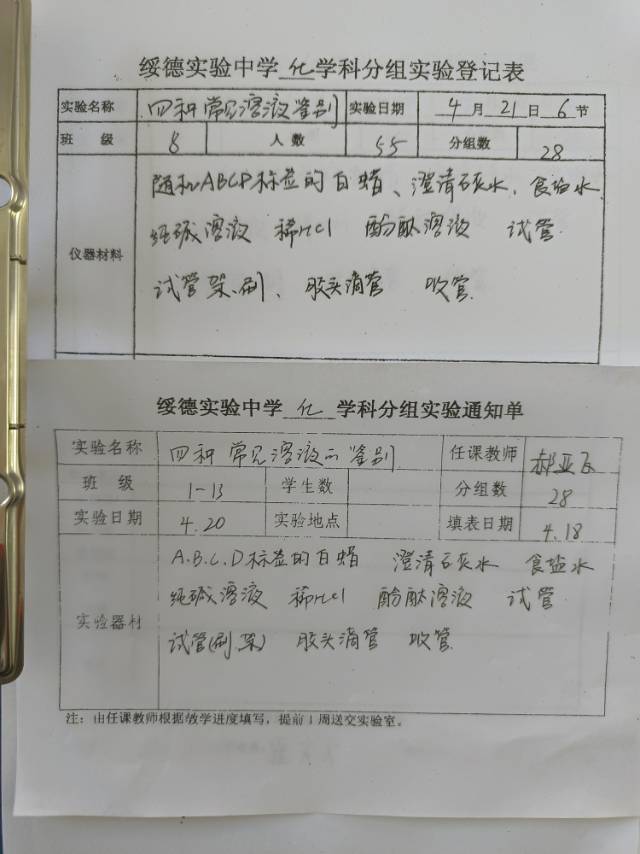 绥德实验中学 化 学科分组实验登记表
实验名称 四种常见溶液鉴别 实验日期 4月21日6节
班级 8 人数 55 分组数 28
仪器材料
ABCD标签的白 、澄清石灰水、食盐水
纯碱溶液 稀HCl 酚酞溶液 试管
试管架、刷、胶头滴管
绥德实验中学 化 学科分组实验通知单
实验名称 四种常见溶液的鉴别 任课教师 郝亚
班级 1-13 学生数 分组数 28
实验日期 4.20 实验地点 填表日期 4.18
实验器材
A.B.C.D标签的白 澄清石灰水 食盐水
纯碱溶液 稀HCl 酚酞溶液 试管
试管(刷架) 胶头滴管
注：由任课教师根据教学进度填写，提前1周送交实验室。